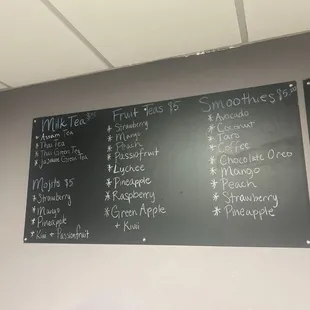 Milk Tea $5
* Assam Tea
* Thai Tea
* Thai Green Tea
* Jasmine Green Tea
Mojito $5
* Strawberry
* Mango
* Pineapple
* Kiwi + Passionfruit
Fruit Teas $5
* Strawberry
* Mango
* Peach
* Passionfruit
* Lychee
* Pineapple
* Raspberry
* Green Apple
+ Kiwi
Smoothies
* Avocado
* Coconut
* Taro
* Coffee
* Chocolate Oreo
* Mango
* Peach
* Strawberry
* Pineapple